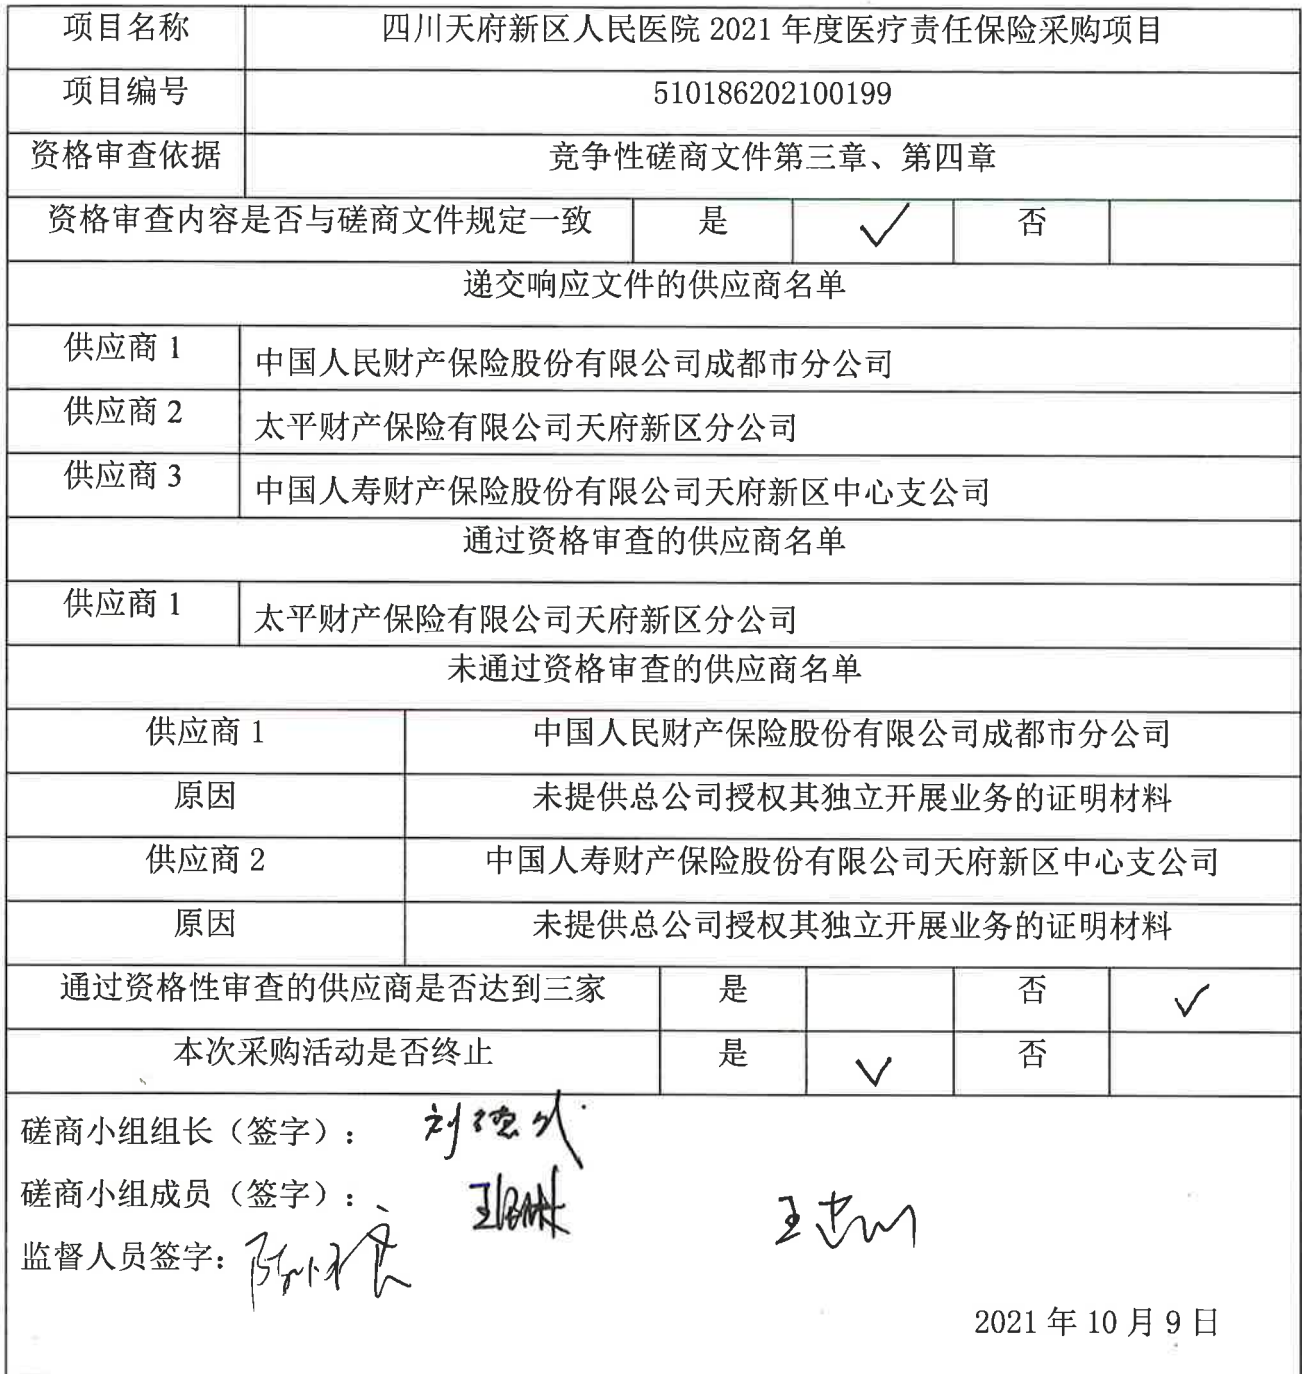 项目名称 四川天府新区人民医院 2021 年度医疗责任保险采购项目
项目编号 510186202100199
资格审查依据 竞争性磋商文件第三章、第四章
资格审查内容是否与磋商文件规定一致 是 ✓ 否
递交响应文件的供应商名单
供应商 1 中国人民财产保险股份有限公司成都市分公司
供应商 2 太平财产保险有限公司天府新区分公司
供应商 3 中国人寿财产保险股份有限公司天府新区中心支公司
通过资格审查的供应商名单
供应商 1 太平财产保险有限公司天府新区分公司
未通过资格审查的供应商名单
供应商 1 中国人民财产保险股份有限公司成都市分公司
原因 未提供总公司授权其独立开展业务的证明材料
供应商 2 中国人寿财产保险股份有限公司天府新区中心支公司
原因 未提供总公司授权其独立开展业务的证明材料
通过资格性审查的供应商是否达到三家 是 否 ✓
本次采购活动是否终止 是 ✓ 否
磋商小组组长（签字）：
磋商小组成员（签字）：
监督人员签字：
2021 年 10 月 9 日